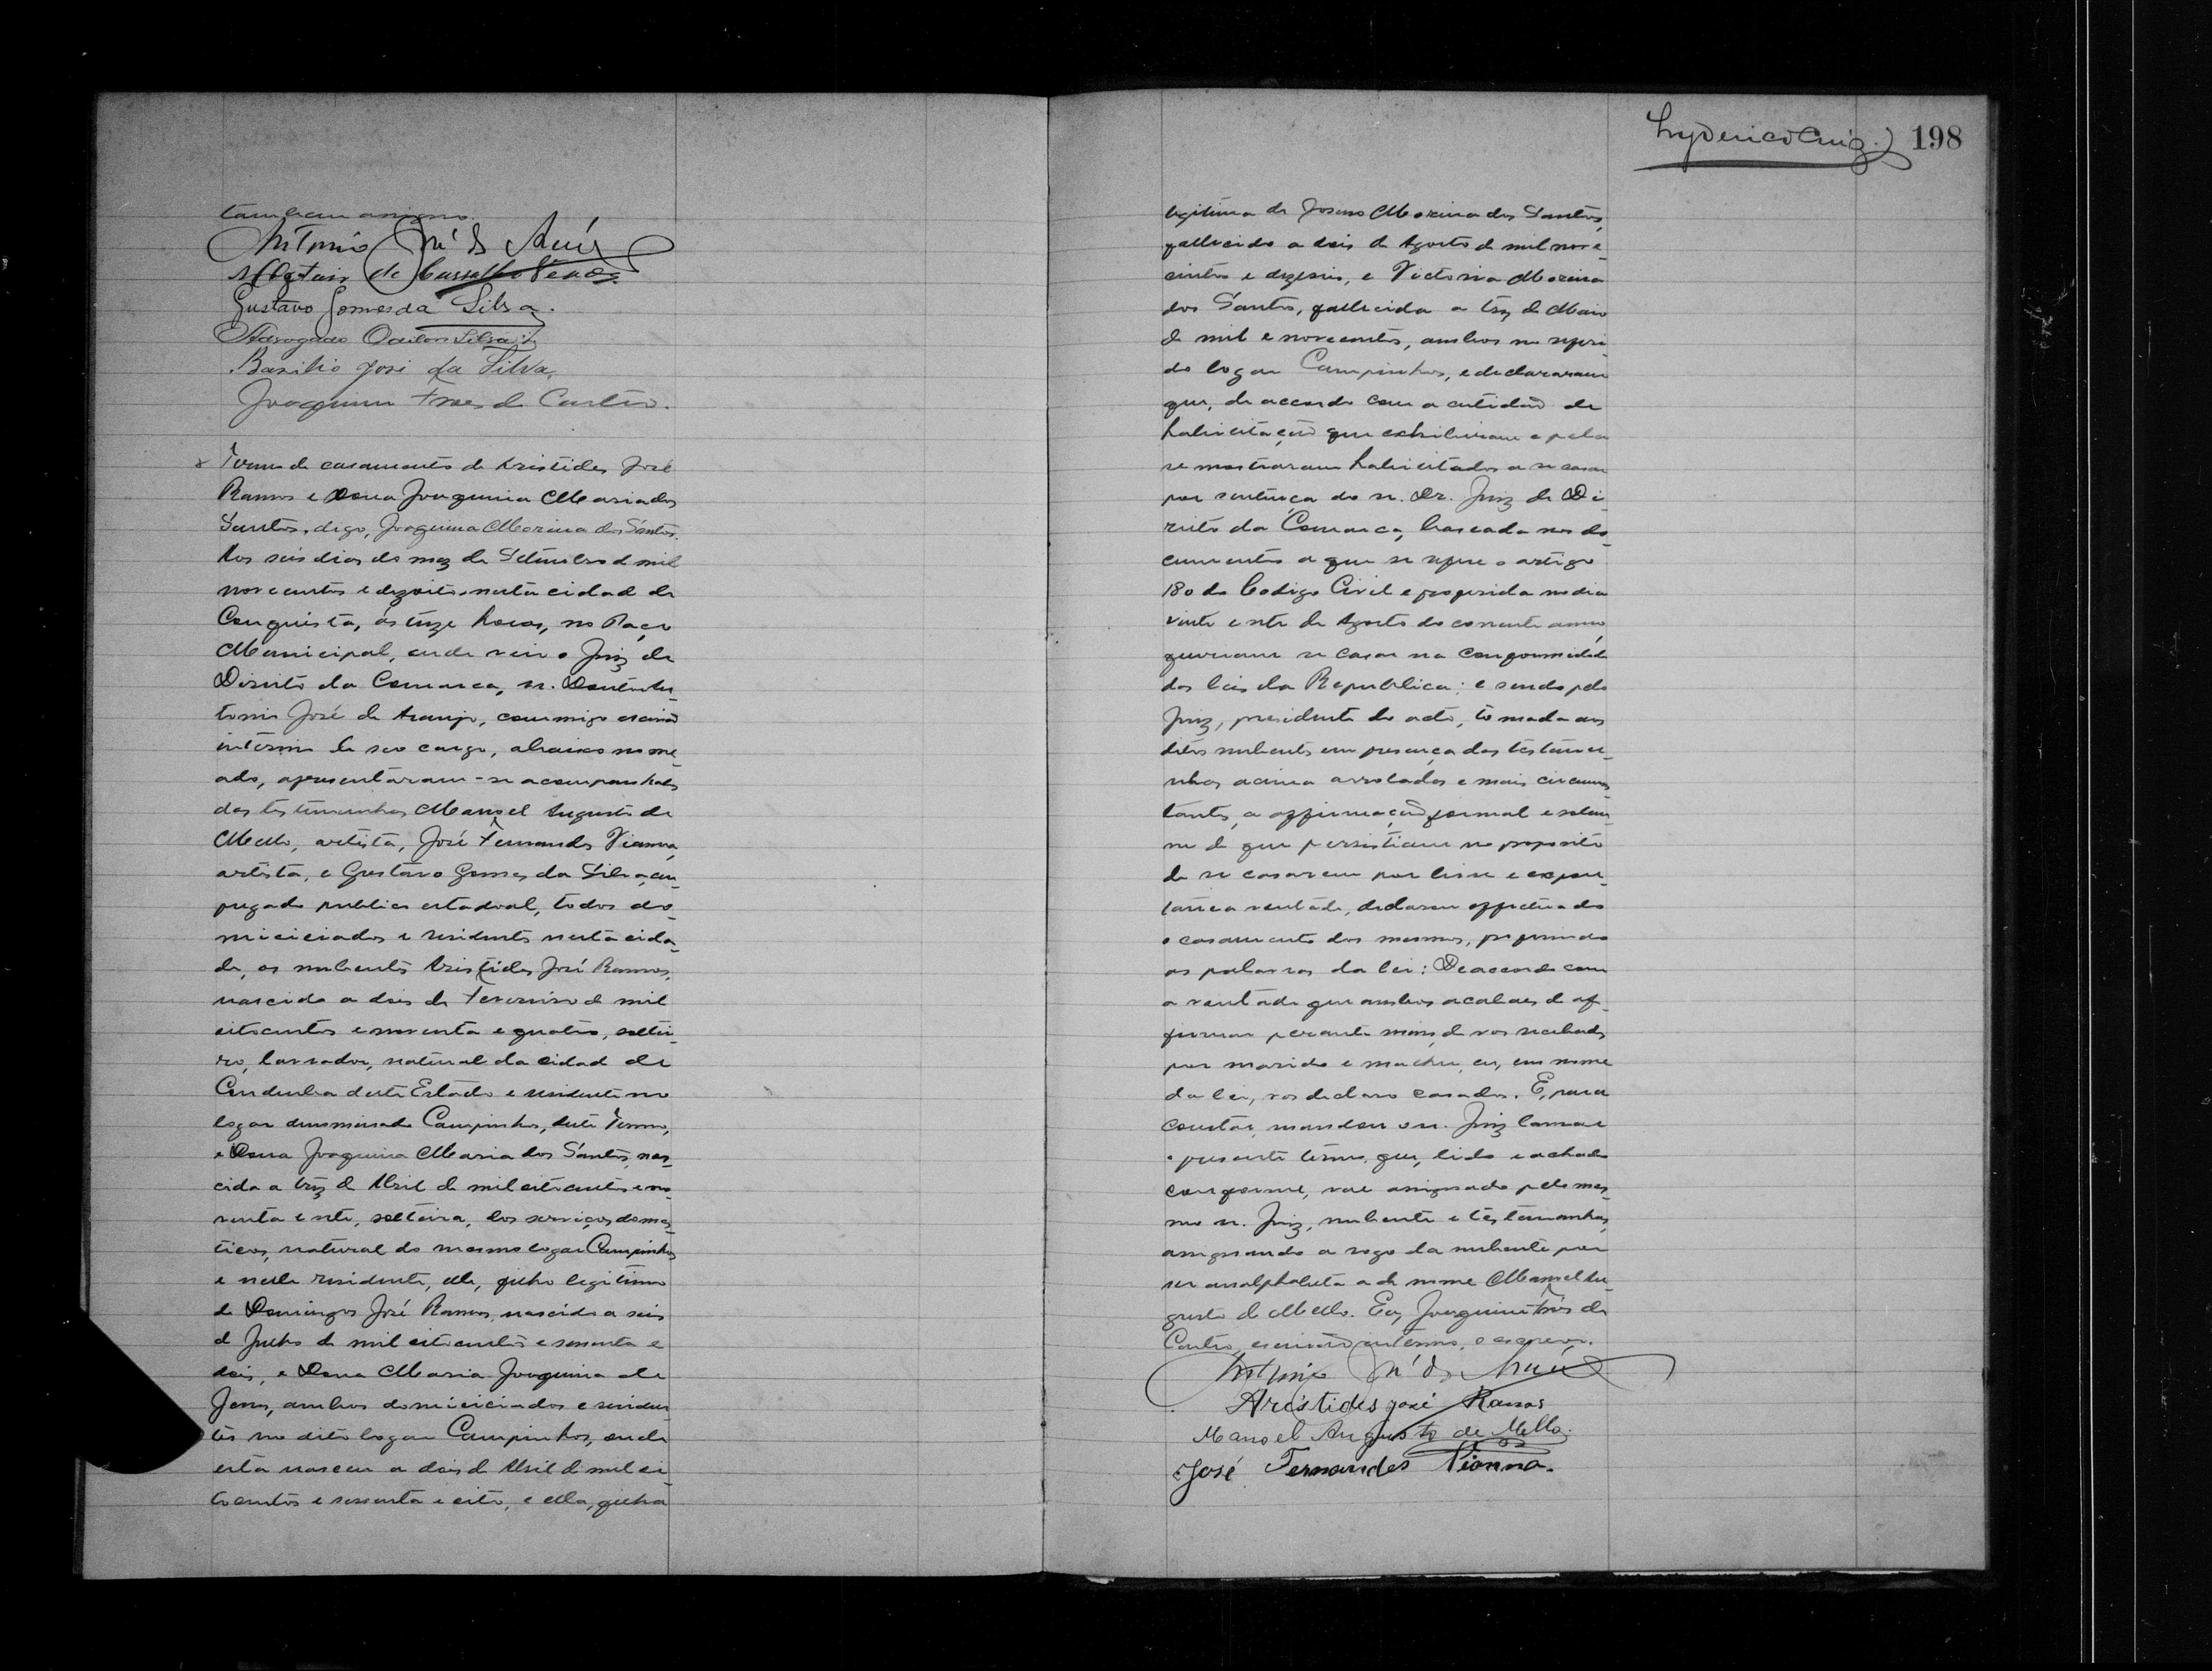 tambem assigno.
Antonio José de
de Carvalho
Gustavo Gomes da Silva.
Advogado Odilon Silva
Basilio José da Silva,
Joaquim Froes de Castro.
Termo de casamento de Aristides José
Ramos e Dona Joaquina Maria dos
Santos, digo, Joaquina Moreira dos Santos.
Aos seis dias do mez de Setembro de mil
novecentos e dezoito, nesta cidade de
Conquista, ás onze horas, no Paço
Municipal, onde veio o Juiz de
Direito da Comarca, sr. Doutor An-
tonio José de Araujo, commigo escrivão
interino de seu cargo, abaixo nome-
ado, apresentaram-se acompanhados
das testemunhas Manoel Augusto de
Mello, artista, José Fernandes Vianna,
artista, e Gustavo Gomes da Silva, em-
pregado publico estadoal, todos do-
miciliados e residentes nesta cida-
de, os nubentes Aristides José Ramos,
nascido a dois de Fevereiro de mil
oitocentos e noventa e quatro, soltei-
ro, lavrador, natural da cidade de
Condeuba deste Estado e residente no
logar denominado Campinhos, deste Termo,
e Dona Joaquina Maria dos Santos, nas-
cida a trez de Abril de mil oitocentos e no-
venta e sete, solteira, dos serviços domes-
ticos, natural do mesmo logar Campinhos
e nelle residente, elle, filho legitimo
de Domingos José Ramos, nascido a seis
de Julho de mil oitocentos e sessenta e
dois, e Dona Maria Joaquina de
Jesus, ambos domiciliados e residen-
tes no dito logar Campinhos, onde
esta nasceu a dois de Abril de mil oi-
tocentos e sessenta e oito, e ella, filha
Lyderico Cruz. 198
legitima de Moreira dos Santos,
fallecido a dois de Agosto de mil nove-
centos e dezeseis, e Victoria Moreira
dos Santos, fallecida a trez de Maio
de mil e novecentos, ambos no referi-
do logar Campinhos, e declararam
que, de accordo com a certidão de
habilitação que exhibiram e pela
se mostraram habilitados a se casar
por sentença do sr. Dr. Juiz de Di-
reito da Comarca, baseada nos do-
cumentos a que se refere o artigo
180 do Codigo Civil e proferida no dia
vinte e sete de Agosto do corrente anno,
queriam se casar na conformidade
das leis da Republica; e sendo pelo
Juiz, presidente do acto, tomada aos
ditos nubentes em presença das testemu-
nhas acima arroladas e mais circums-
tantes, a affirmação formal e solem-
ne de que persistiam no proposito
de se casarem por livre e espon-
tanea vontade, declarou effectuado
o casamento dos mesmos, proferindo
as palavras da lei: De accordo com
a vontade que ambos acabaes de af-
firmar perante mim, de vos receberdes
por marido e mulher, eu, em nome
da lei, vos declaro casados. E, para
constar, mandou o sr. Juiz lavrar
o presente termo, que, lido e achado
conforme, vae assignado pelo mes-
mo sr. Juiz, nubente e testemunhas,
assignando a rogo da nubente por
ser analphabeta a de nome Manoel Au-
gusto de Mello. Eu, Joaquim Froes de
Castro, escrivão interino, o escrevi.
Antonio José de
Aristides José Ramos
Manoel Augusto de Mello.
José Fernandes Vianna.